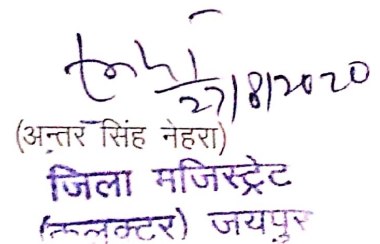 27/8/2020
(अन्तर सिंह नेहरा)
जिला मजिस्ट्रेट
(कलक्टर) जयपुर